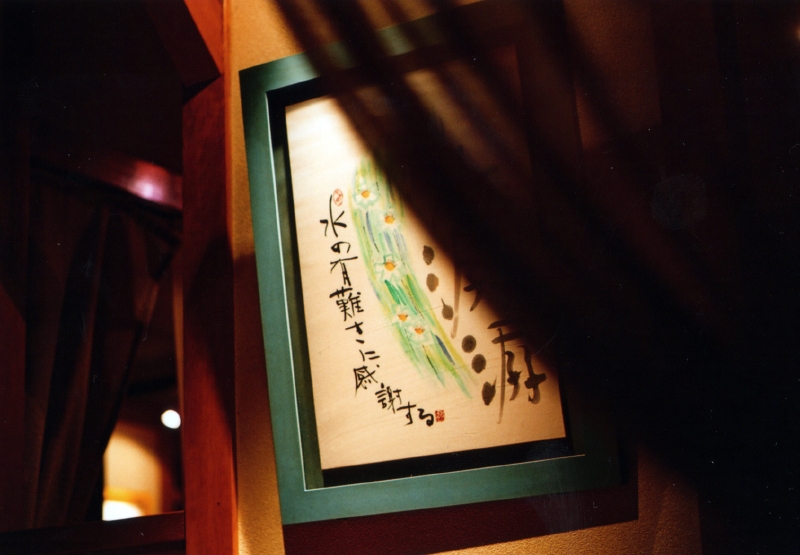 水の有難さに感謝する